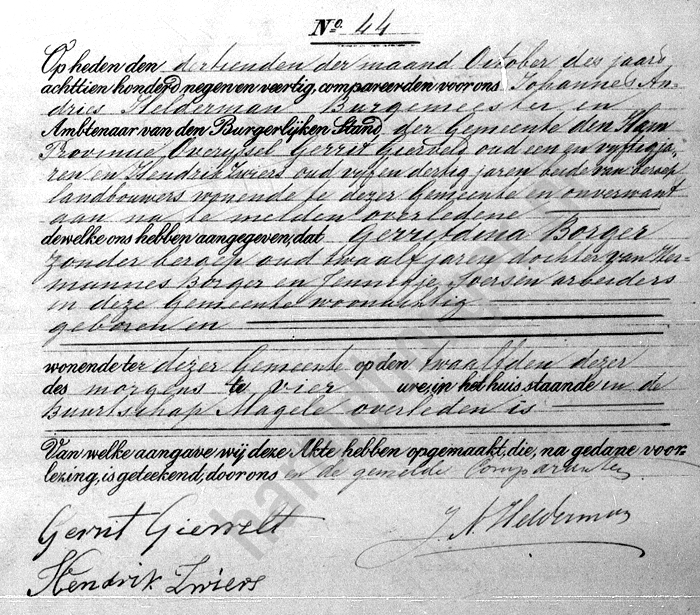 No. 44
Op heden den dertienden der maand October des jaars
achttien honderd negen en veertig, compareerden voor ons Johannes An-
dries Helderman Burgemeester en
Ambtenaar van den Burgerlijken Stand der Gemeente den Ham
Provincie Overijssel Gerrit Giervelt oud een en vijftig ja-
ren en Hendrik Zwiers oud vijf en dertig jaren beide van beroep
landbouwers wonende te dezer Gemeente en onverwant
aan na te melden overledene
dewelke ons hebben aangegeven, dat Gerritdina Borger
zonder beroep oud twaalf jaren dochter van Her-
mannes Borger en Jennegje arbeiders
in deze Gemeente woonachtig
geboren en
wonende ter dezer Gemeente op den twaalfden dezer
des morgens te vier ure, in het huis, staande in de
Buurtschap Magele overleden is
Van welke aangave wij deze Akte hebben opgemaakt, die, na gedane voor-
lezing, is geteekend; door ons en de gemelde Comparanten
Gerrit Giervelt
J. A. Helderman
Hendrik Zwiers